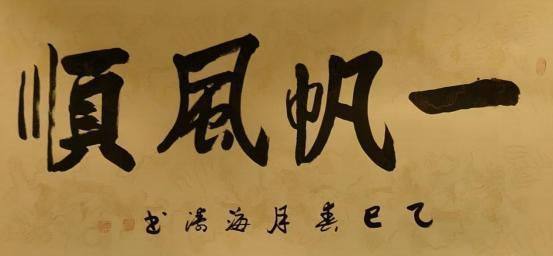 一帆風順
乙巳春月海濤书